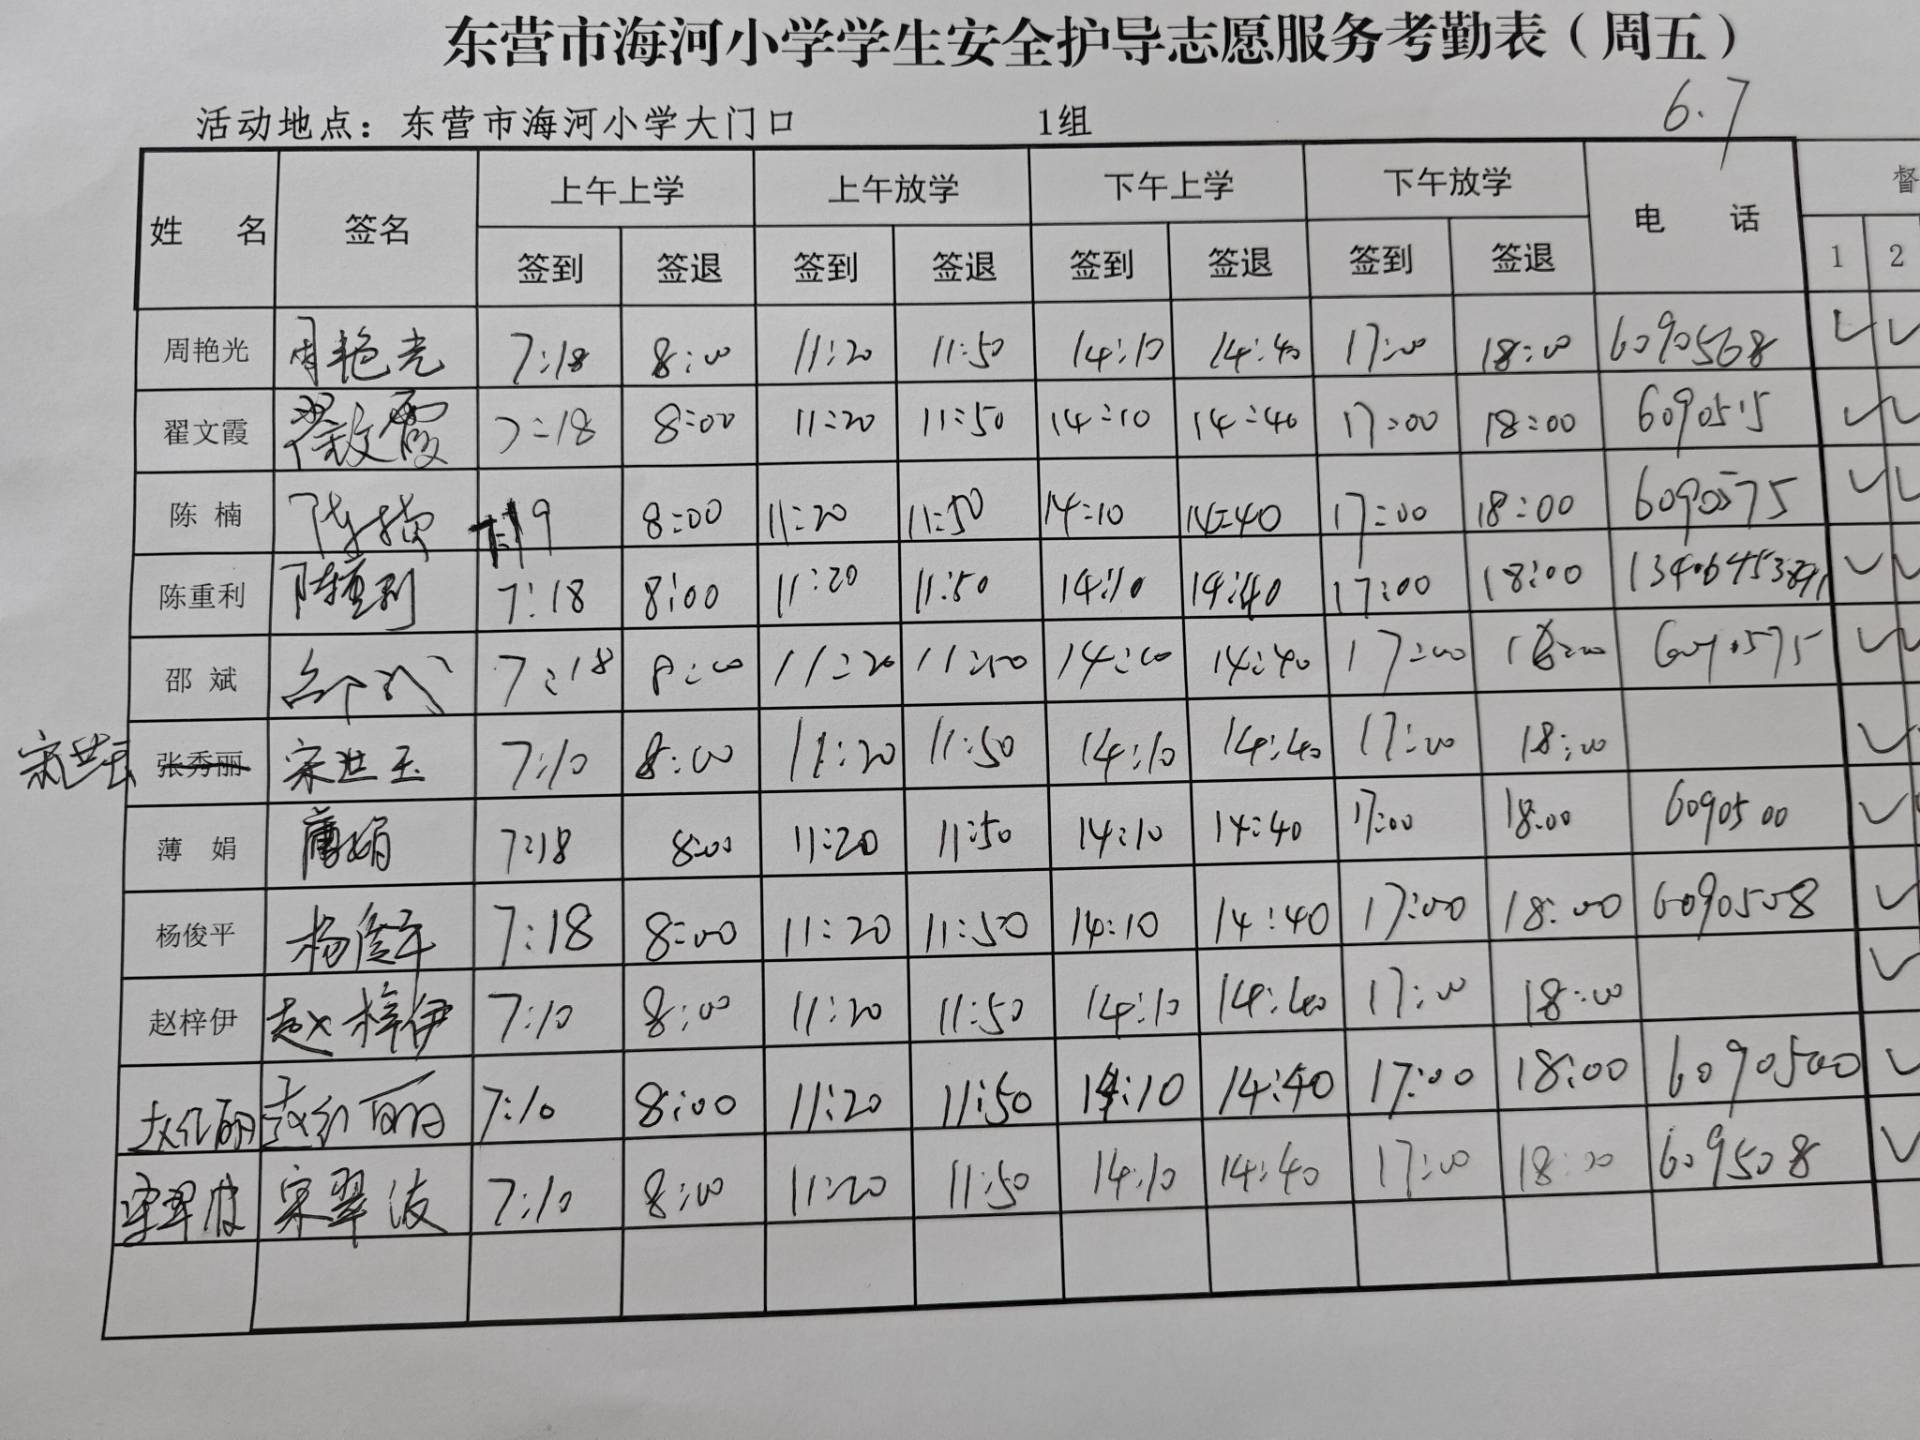 东营市海河小学学生安全护导志愿服务考勤表（周五）
6.7
活动地点：东营市海河小学大门口 1组
姓 名 签名 上午上学 上午放学 下午上学 下午放学 电 话 督
签到 签退 签到 签退 签到 签退 签到 签退 1 2
周艳光 周艳光 7:18 8:00 11:20 11:50 14:10 14:40 17:00 18:00 6090568
翟文霞 翟文霞 7:18 8:00 11:20 11:50 14:10 14:40 17:00 18:00 6090515
陈 楠 陈楠 7:19 8:00 11:20 11:50 14:10 14:40 17:00 18:00 6090575
陈重利 陈重利 7:18 8:00 11:20 11:50 14:10 14:40 17:00 18:00
邵 斌 邵斌 7:18 8:00 11:20 11:50 14:00 14:40 17:00 18:00 6090575
宋世玉 张秀丽 宋世玉 7:10 8:00 11:20 11:50 14:10 14:40 17:00 18:00
薄 娟 薄娟 7:18 8:00 11:20 11:50 14:10 14:40 17:00 18:00 6090500
杨俊平 杨俊平 7:18 8:00 11:20 11:50 14:10 14:40 17:00 18:00 6090508
赵梓伊 赵梓伊 7:10 8:00 11:20 11:50 14:10 14:40 17:00 18:00
赵红丽 赵红丽 7:10 8:00 11:20 11:50 14:10 14:40 17:00 18:00 6090500
宋翠波 宋翠波 7:10 8:00 11:20 11:50 14:10 14:40 17:00 18:00 609508